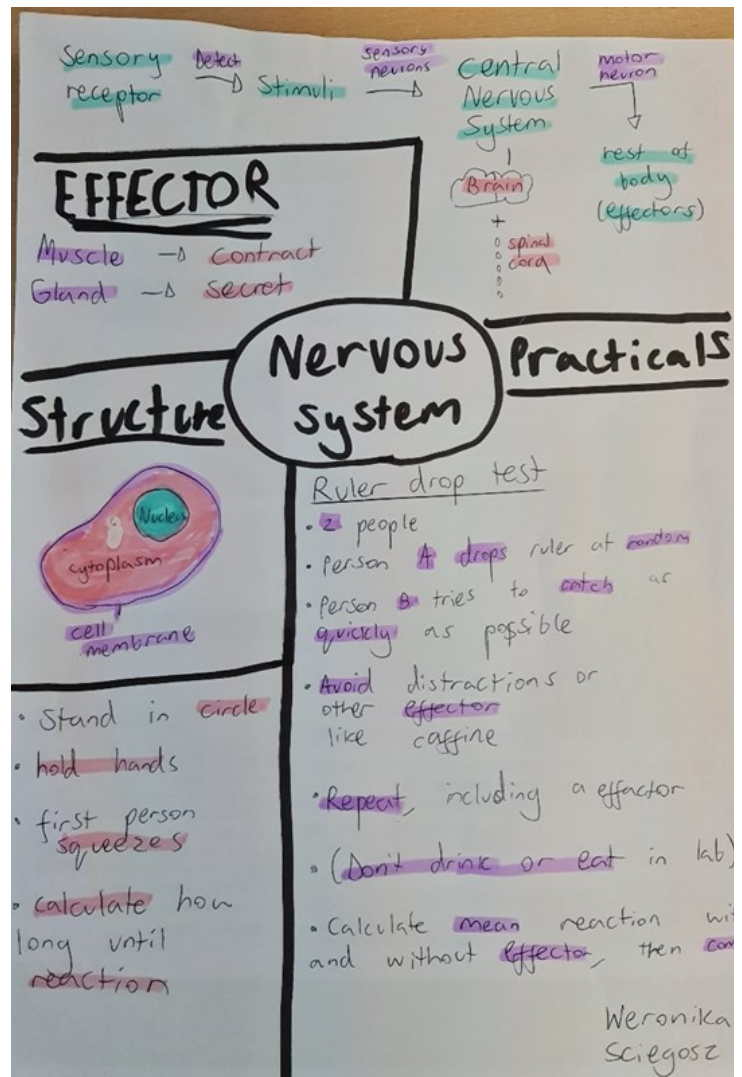 Sensory receptor
Detect
Stimuli
sensory neurons
Central Nervous System
motor neuron
rest of body (effectors)
Brain
+
spinal cord
EFFECTOR
Muscle → contract
Gland → secret
Nervous system
Structure
Nucleus
cytoplasm
cell membrane
Practicals
Ruler drop test
• 2 people
• Person A drops ruler at random
• Person B tries to catch as
quickly as possible
• Avoid distractions or
other effector
like caffine
• Repeat, including a effactor
• (Don't drink or eat in lab)
• Calculate mean reaction wit
and without effector, then com
• Stand in circle
• hold hands
• first person
squeezes
• calculate how
long until
reaction
Weronika
Sciegosz